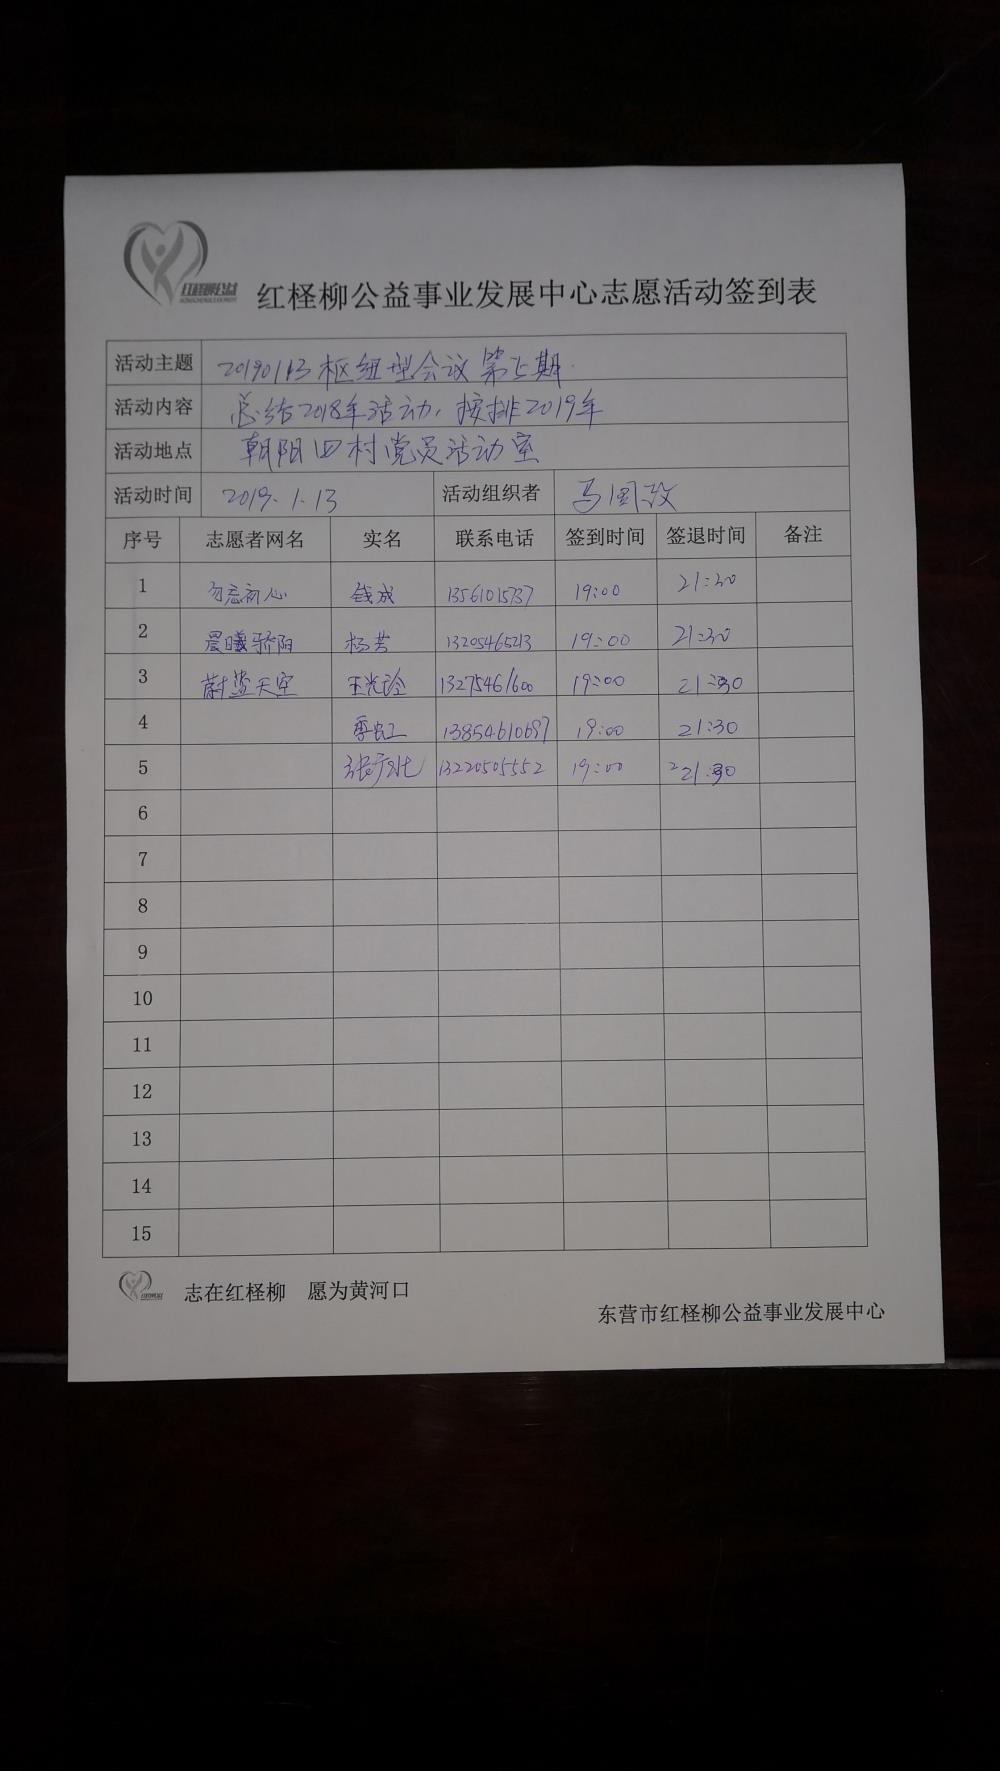 红柽柳公益
红柽柳公益事业发展中心志愿活动签到表
活动主题 20190113枢纽型会议第
活动内容 总结2018年活动,按排2019年
活动地点 朝阳四村党员活动室
活动时间 2019.1.13 活动组织者 马国政
序号 志愿者网名 实名 联系电话 签到时间 签退时间 备注
1 勿忘初心 钱成 13561015737 19:00 21:30
2 晨曦骄阳 杨芸 13205465213 19:00 21:30
3 蔚蓝天空 王光玲 13275461600 19:00 21:30
4 季虹 13854610697 19:00 21:30
5 张 13220505552 19:00 21:30
6
7
8
9
10
11
12
13
14
15
志在红柽柳 愿为黄河口
东营市红柽柳公益事业发展中心